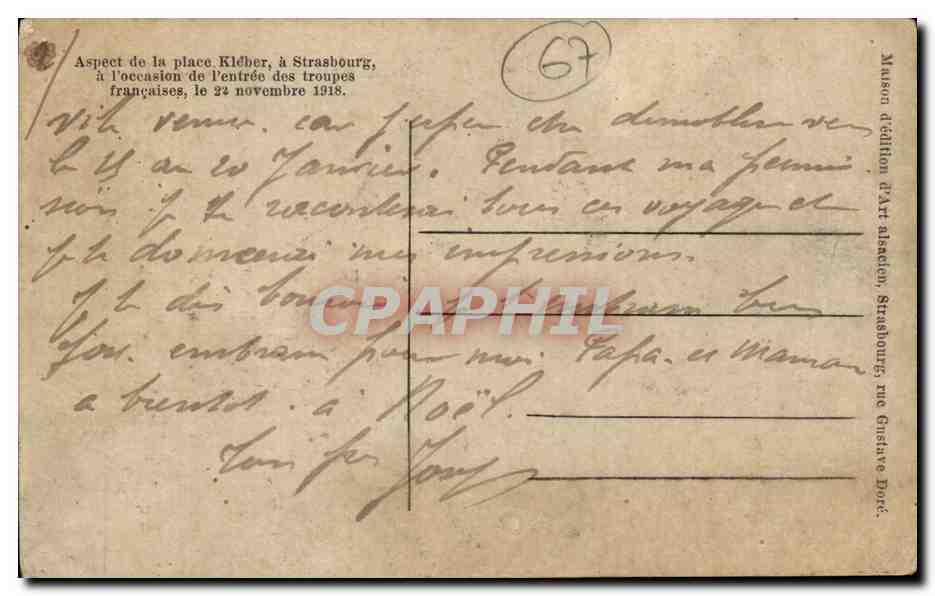 Aspect de la place Kléber, à Strasbourg,
à l'occasion de l'entrée des troupes
françaises, le 22 novembre 1918.
67
vite venue. car je pense etre demobiliser vers
le 15 au 20 Janvier. Pendant ma permis
sion je te raconterai tous ces voyages et
je te donnerai mes impressions.
Je te dis bonsoir je t'embrasse bien
fort. embrasse pour moi Papa et Maman
a bientot. à Noël.
Ton
CPAPHIL
Maison d'édition d'Art alsacien, Strasbourg, rue Gustave Doré.